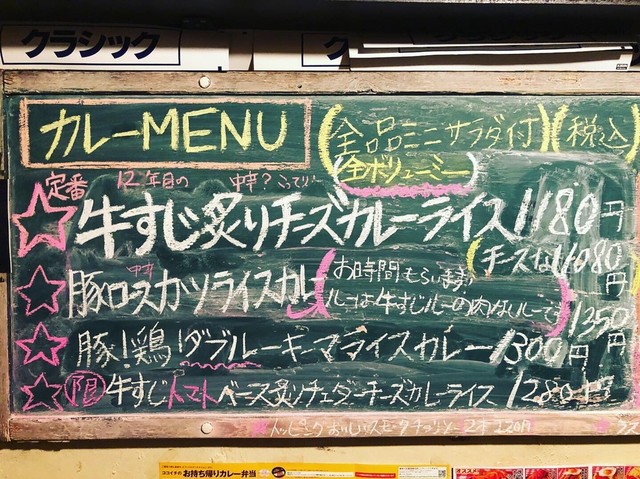 クラシック
カレーMENU
(全品ミニサラダ付)(税込)
全ボリューミー
定番 12年目の 中辛?こってり
牛すじ炙りチーズカレーライス1180円
チーズなし1080円
中辛
豚ロースカツライスカレー
お時間もらいます!
ルーは牛すじルーの肉なしルーです
1350円
豚!鶏!ダブルキーマライスカレー1300円
限 牛すじトマトベース炙りチェダーチーズカレーライス 1280円
トッピング 2本 220円
ココイチの お持ち帰りカレー弁当